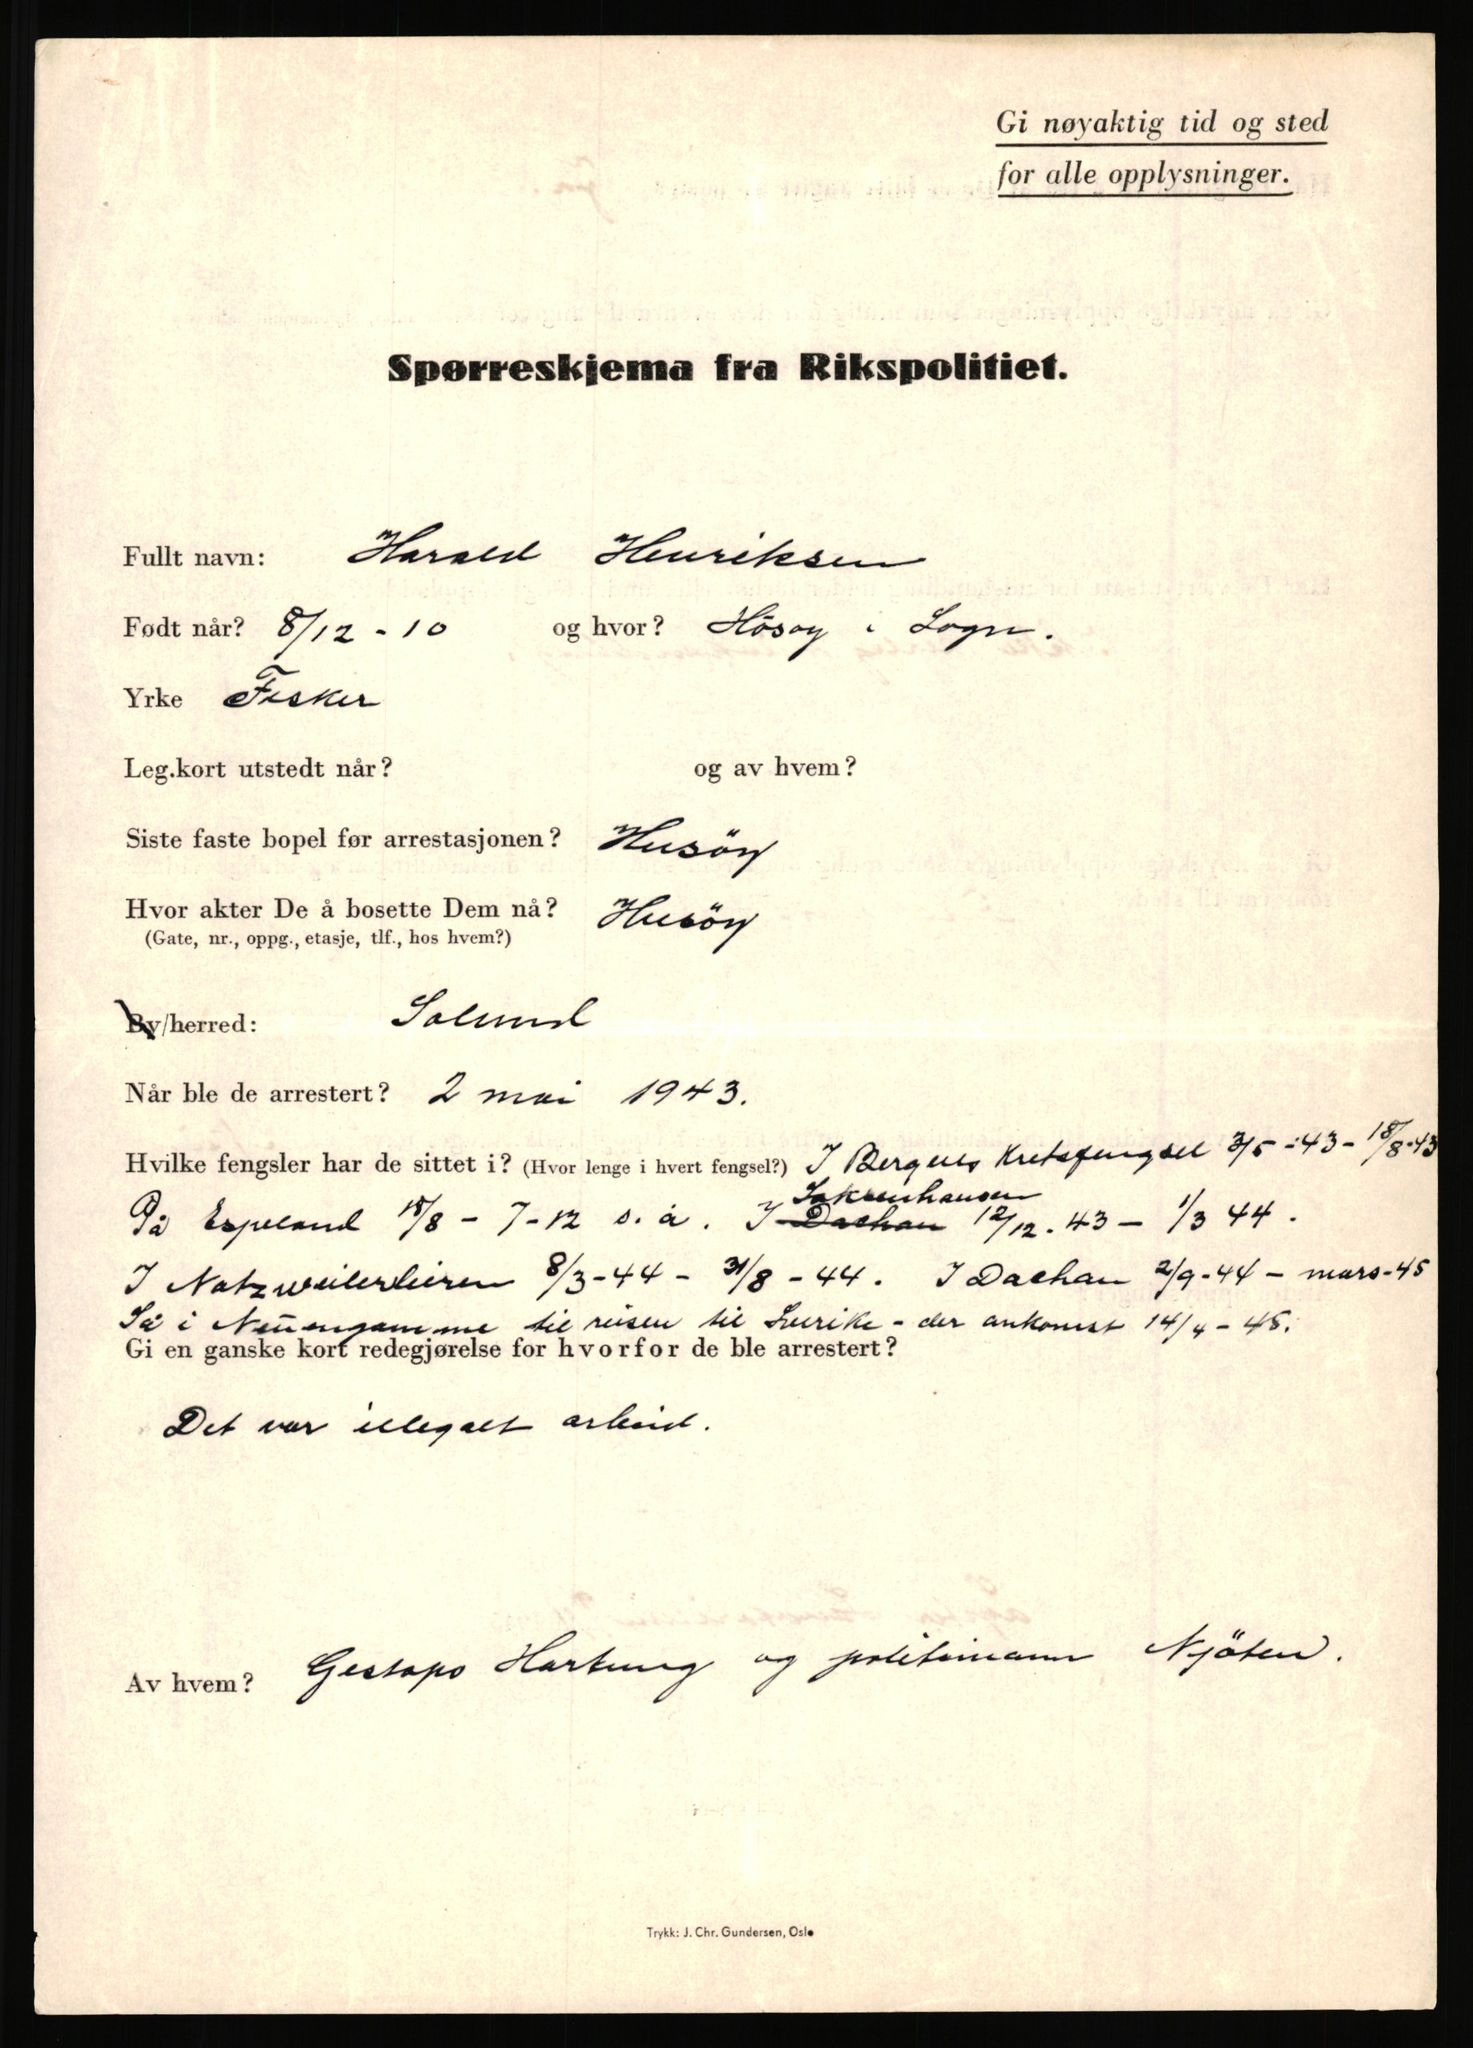 Gi nøyaktig tid og sted
for alle opplysninger.
Spørreskjema fra Rikspolitiet.
Fullt navn: Harald Henriksen
Født når? 8/12 - 10 og hvor? Hösöy i Sogn.
Yrke Fisker
Leg.kort utstedt når? og av hvem?
Siste faste bopel før arrestasjonen? Husöy
Hvor akter De å bosette Dem nå? Husöy
(Gate, nr., oppg., etasje, tlf., hos hvem?)
By/herred: Solund
Når ble de arrestert? 2 mai 1943.
Hvilke fengsler har de sittet i? (Hvor lenge i hvert fengsel?) I Bergens Kretsfengsel 3/5 - 43 - 18/8-43
På Espeland 18/8 - 7-12 s. å. I Dachau Saksenhausen 12/12. 43 - 1/3 44.
I Natzweilerleiren 8/3-44 - 31/8 - 44. I Dachau 2/9-44 - mars-45
Så i Neuengamme til reisen til Sverike - der ankomst 14/4 - 45.
Gi en ganske kort redegjørelse for hvorfor de ble arrestert?
Det var illegalt arbeid.
Av hvem? Gestapo Hartung og politimann Njöten.
Trykk: J. Chr. Gundersen, Oslo